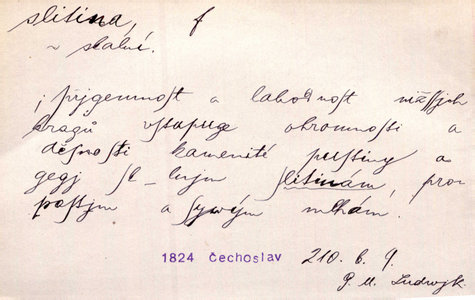 slitina, f
~ skalní.
; přigemnost a lahodnost nižssjch
kragů vstupuge ohromnosti a
děsnosti kamenité pustiny a
gegj sk_lným slitinám, pro
postjm a sywým mlhám.
1824 Čechoslav 210. b. 9.
J. M. Ludwjk.